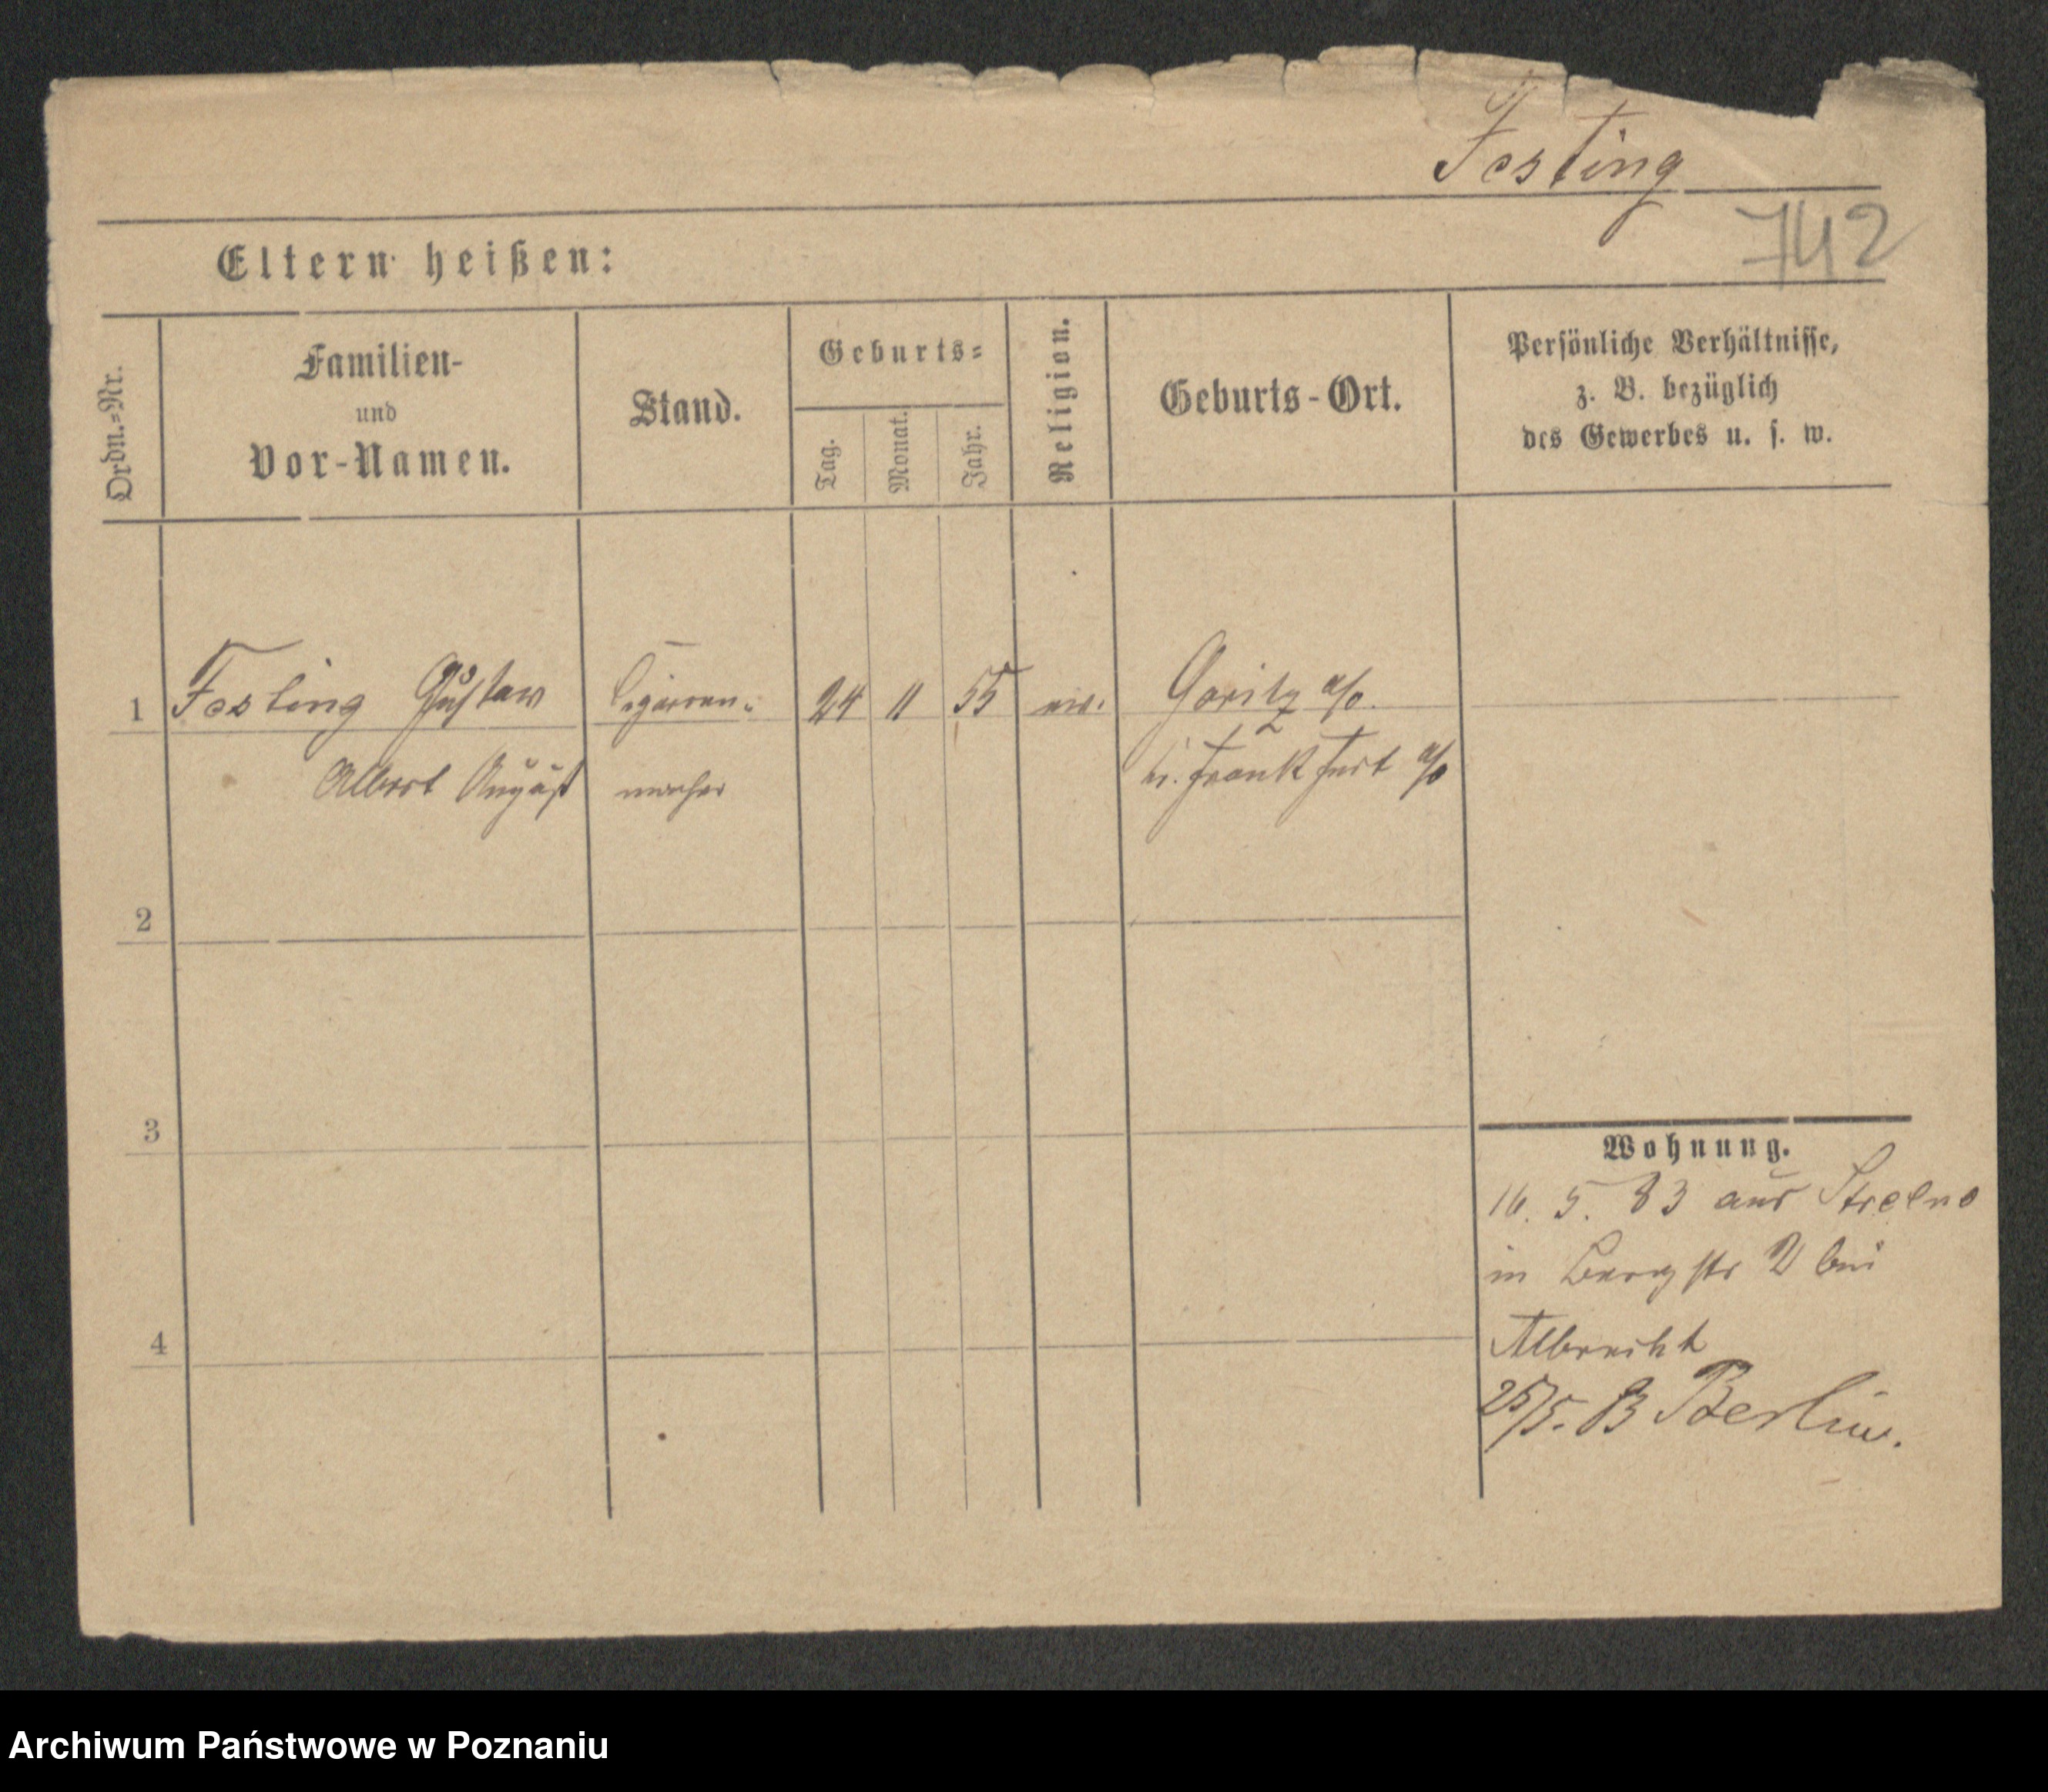 Festing
742
Eltern heißen:
Ordn.=Nr.
Familien-
und
Vor-Namen.
Stand.
Geburts=
Tag.
Monat.
Jahr.
Religion.
Geburts-Ort.
Persönliche Verhältnisse,
z. B. bezüglich
des Gewerbes u. s. w.
1 Festing Gustaw Cigarren= 24 11 55 ev. Goritz a/o.
Albert August macher Kr. Frankfurt a/o
2
3
4
Wohnung.
16. 5. 83 aus Strelno
in Bergstr 2 bei
Albrecht
25/5. 83 Berlin.
Archiwum Państwowe w Poznaniu